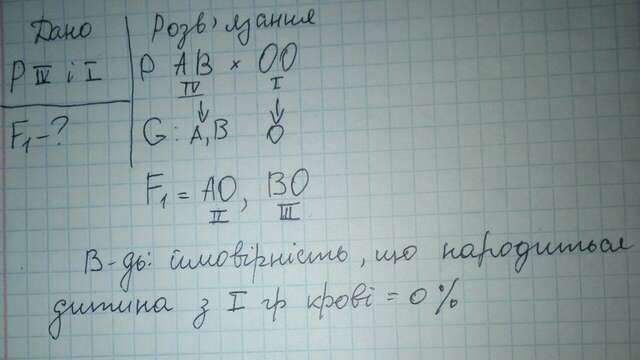 Дано Розв'язання
P IV і I P AB × OO
IV I
F₁-? G: A,B O
F₁ = AO, BO
II III
В-дь: ймовірність, що народиться
дитина з I гр крові = 0%